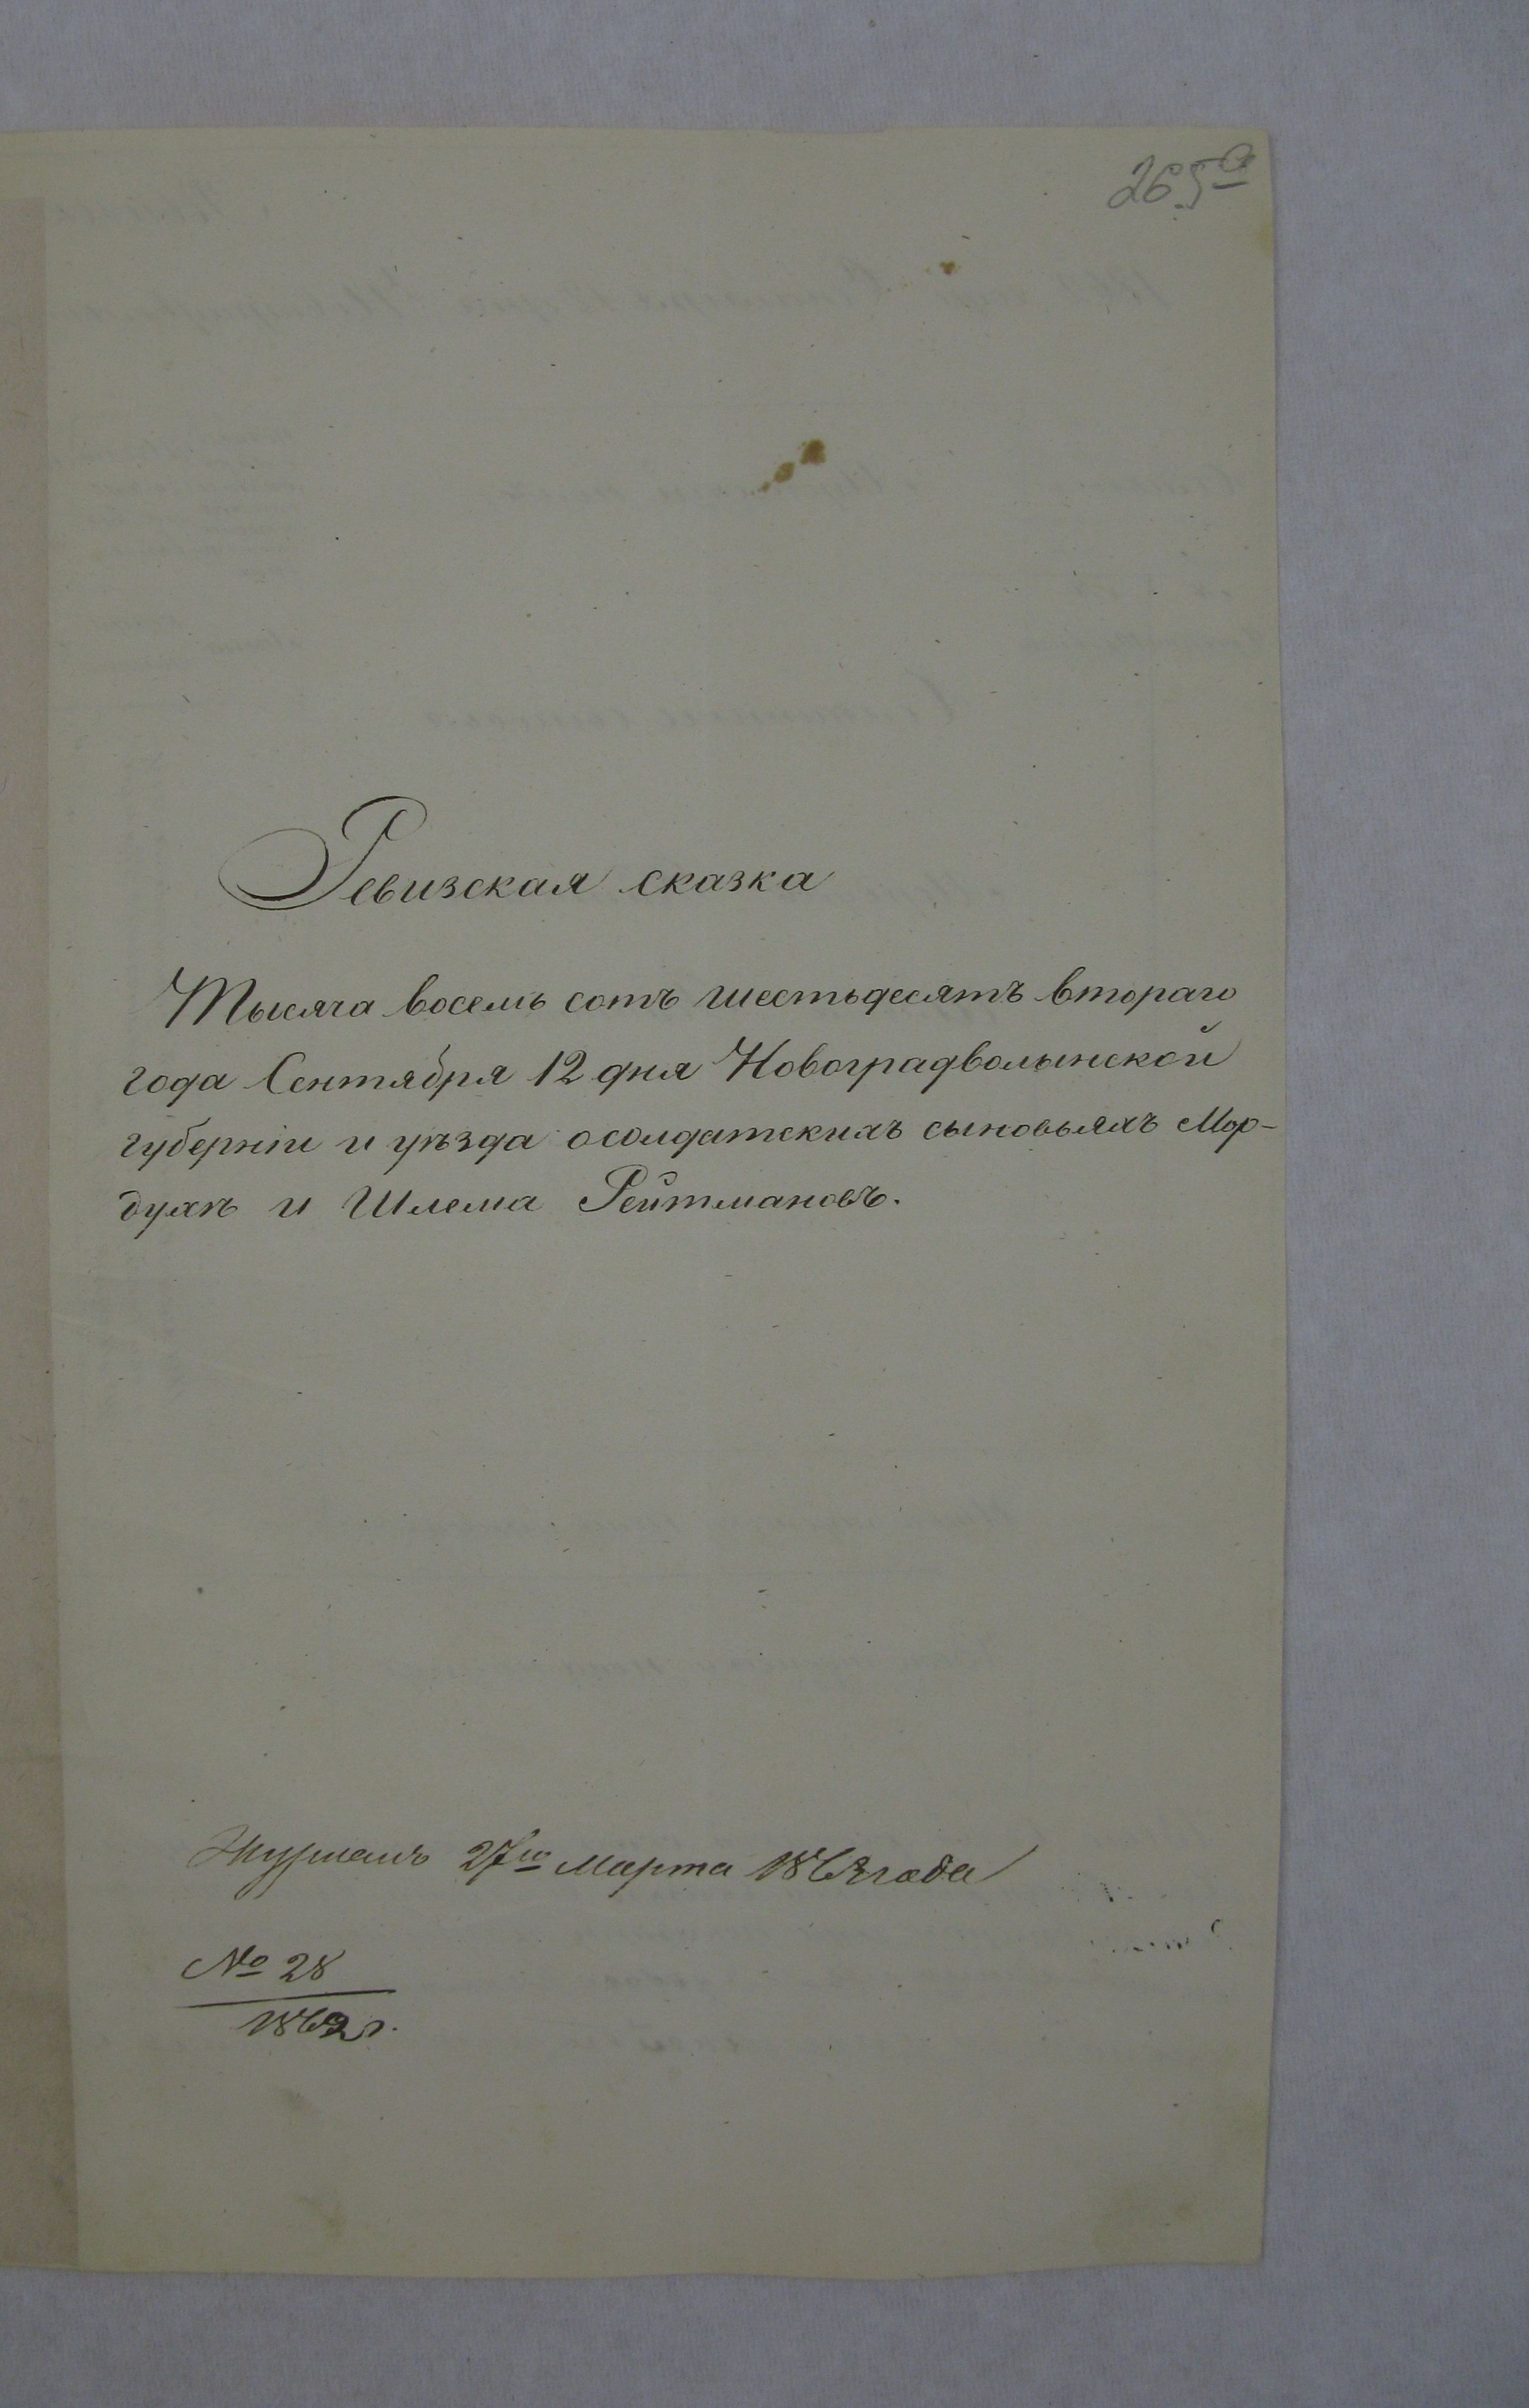 265а
Ревизская сказка
Тысяча восемь сотъ шестьдесятъ втораго
года Сентября 12 дня Новоградволынской
губерніи и уѣзда о солдатскихъ сыновьяхъ Мор-
духѣ и Шлема Рейтмановъ.
Журналъ 27го Марта 1862 года
№ 28
1862 г.